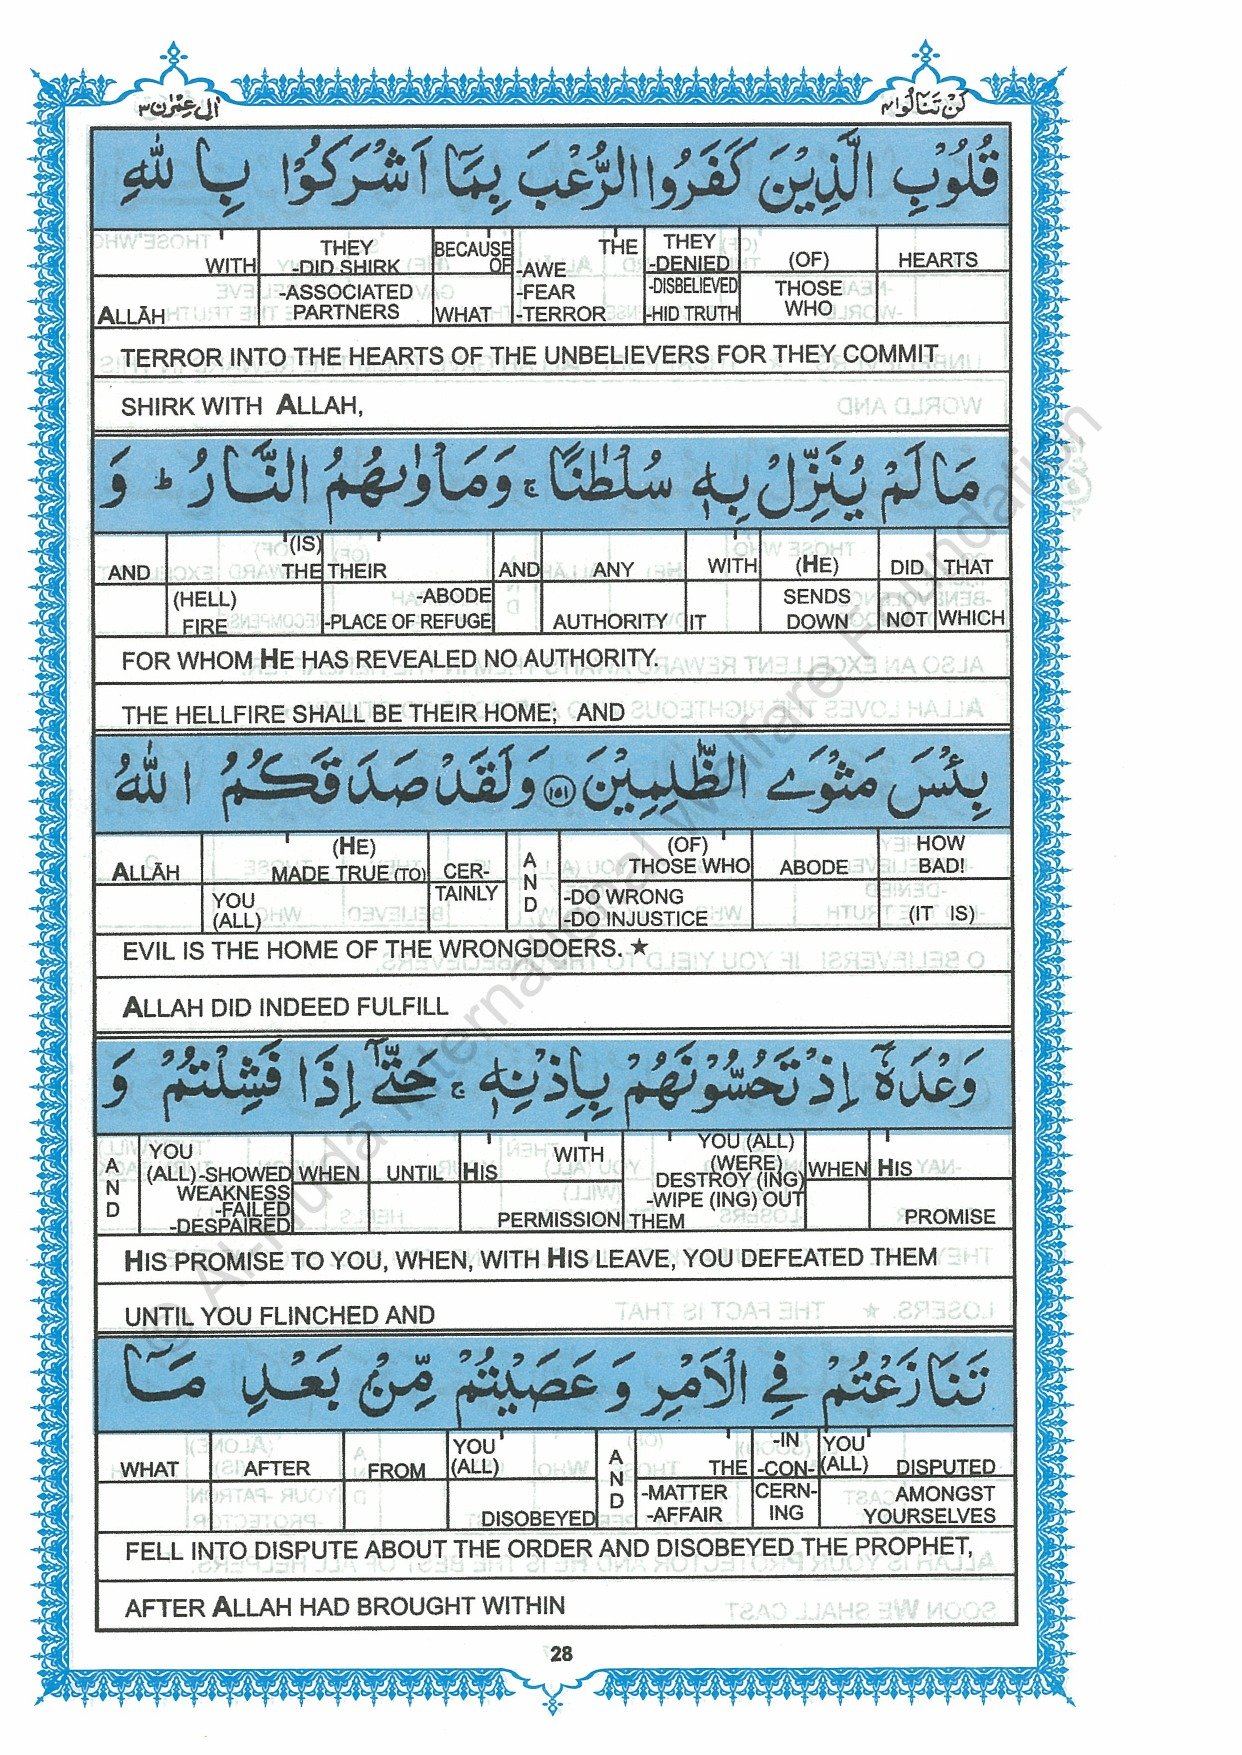 اٰلِ عِمْرٰن ٣
لَنْ تَنَالُوا ٤
قُلُوْبِ الَّذِيْنَ كَفَرُوا الرُّعْبَ بِمَآ اَشْرَكُوْا بِاللّٰهِ
WITH THEY -DID SHIRK BECAUSE OF THE -AWE THEY -DENIED (OF) HEARTS
ALLĀH -ASSOCIATED PARTNERS WHAT -FEAR -TERROR -DISBELIEVED -HID TRUTH THOSE WHO
TERROR INTO THE HEARTS OF THE UNBELIEVERS FOR THEY COMMIT
SHIRK WITH ALLAH,
مَا لَمْ يُنَزِّلْ بِهٖ سُلْطٰنًا ۚ وَمَاْوٰىهُمُ النَّارُ ؕ وَ
AND (IS) THE THEIR AND ANY WITH (HE) DID THAT
(HELL) FIRE -ABODE -PLACE OF REFUGE AUTHORITY IT SENDS DOWN NOT WHICH
FOR WHOM HE HAS REVEALED NO AUTHORITY.
THE HELLFIRE SHALL BE THEIR HOME; AND
بِئْسَ مَثْوَى الظّٰلِمِيْنَ ١٥١ وَلَقَدْ صَدَقَكُمُ اللّٰهُ
ALLĀH (HE) MADE TRUE (TO) CER- AND (OF) THOSE WHO ABODE HOW BAD!
YOU (ALL) TAINLY -DO WRONG -DO INJUSTICE (IT IS)
EVIL IS THE HOME OF THE WRONGDOERS. ★
ALLAH DID INDEED FULFILL
وَعْدَهٗٓ اِذْ تَحُسُّوْنَهُمْ بِاِذْنِهٖ ۚ حَتّٰٓى اِذَا فَشِلْتُمْ وَ
AND YOU (ALL)-SHOWED WHEN UNTIL HIS WITH YOU (ALL) (WERE) DESTROY (ING) WHEN HIS
WEAKNESS -FAILED -DESPAIRED PERMISSION THEM -WIPE (ING) OUT PROMISE
HIS PROMISE TO YOU, WHEN, WITH HIS LEAVE, YOU DEFEATED THEM
UNTIL YOU FLINCHED AND
تَنَازَعْتُمْ فِي الْاَمْرِ وَعَصَيْتُمْ مِّنْ بَعْدِ مَآ
WHAT AFTER FROM YOU (ALL) AND THE -IN -CON- YOU (ALL) DISPUTED
DISOBEYED -MATTER -AFFAIR CERN- ING AMONGST YOURSELVES
FELL INTO DISPUTE ABOUT THE ORDER AND DISOBEYED THE PROPHET,
AFTER ALLAH HAD BROUGHT WITHIN
28
© Al-Huda International Welfare Foundation